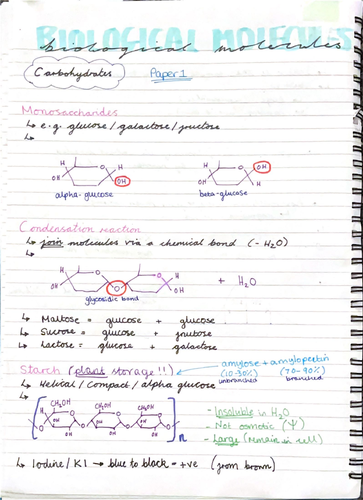 BIOLOGICAL MOLECULES
biological molecules
Carbohydrates Paper 1
Monosaccharides
↳ e.g. glucose / galactose / fructose
↳
H O H H O OH
OH OH OH H
alpha-glucose beta-glucose
Condensation reaction
↳ join molecules via a chemical bond (- H₂O)
↳
H O H H O H
OH O OH + H₂O
glycosidic bond
↳ Maltose = glucose + glucose
↳ Sucrose = glucose + fructose
↳ Lactose = glucose + galactose
Starch (plant storage!!) amylose + amylopectin
(10-30%) (70-90%)
unbranched branched
↳ Helical / compact / alpha glucose
↳
CH₂OH CH₂OH CH₂OH
O O O
OH OH OH
n
- Insoluble in H₂O
- Not osmotic (Ψ)
- Large (remain in cell)
↳ Iodine / KI → blue to black = +ve (from brown)